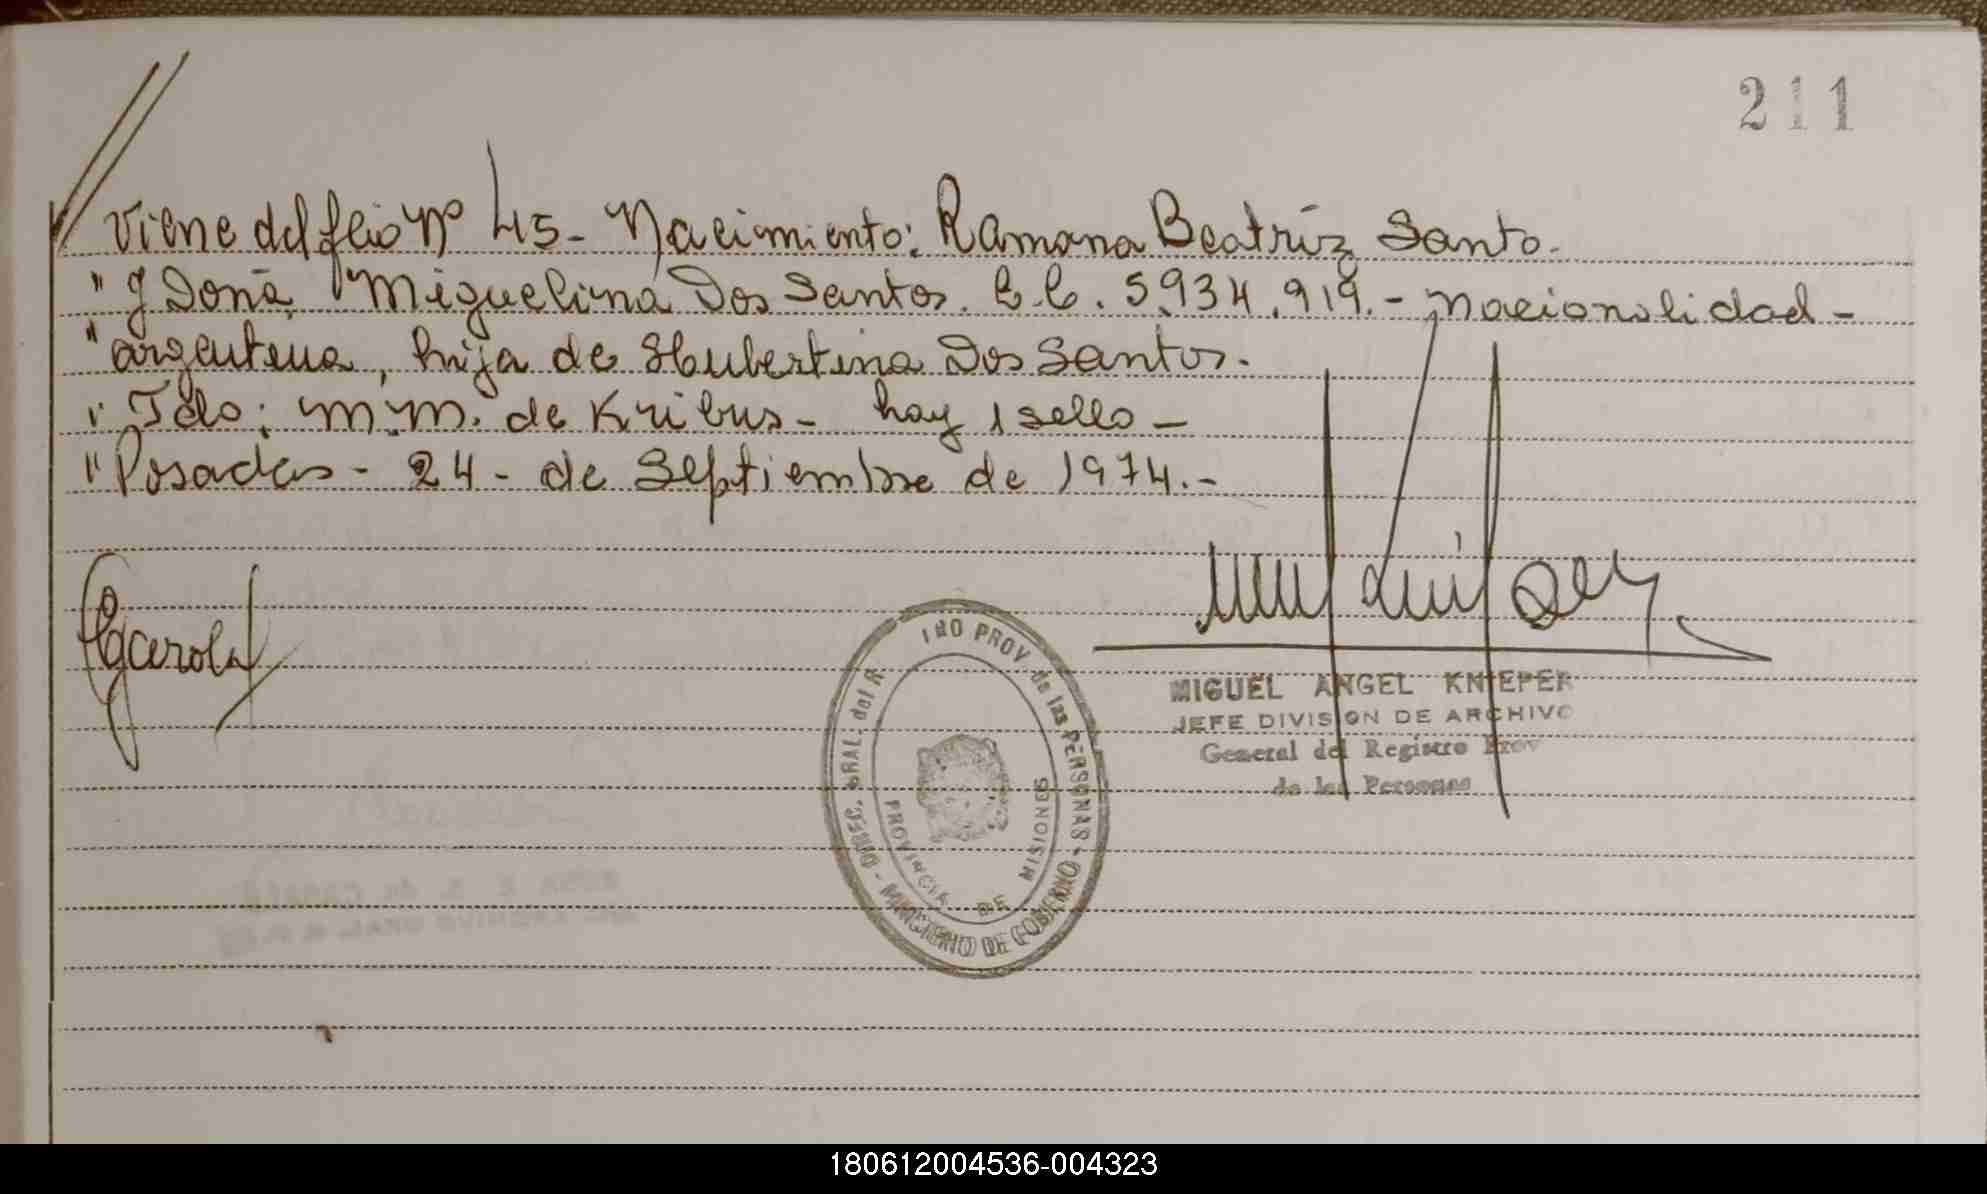 211
Viene del flio Nº 45- Nacimiento: Ramona Beatríz Santo.
" y Doña Miguelina Dos Santos. C.C. 5.934.919.- Nacionalidad -
" argentina, hija de Hubertina Dos Santos.
" Fdo: M.M. de Kribus- hay 1 sello -
" Posadas - 24 - de Septiembre de 1974.-
MIGUEL ANGEL KNIEPER
JEFE DIVISION DE ARCHIVO
General del Registro Prov
de las Personas
DIREC. GRAL. del R. PROV. de las PERSONAS - MINISTERIO DE GOBIERNO
PROVINCIA DE MISIONES
180612004536-004323